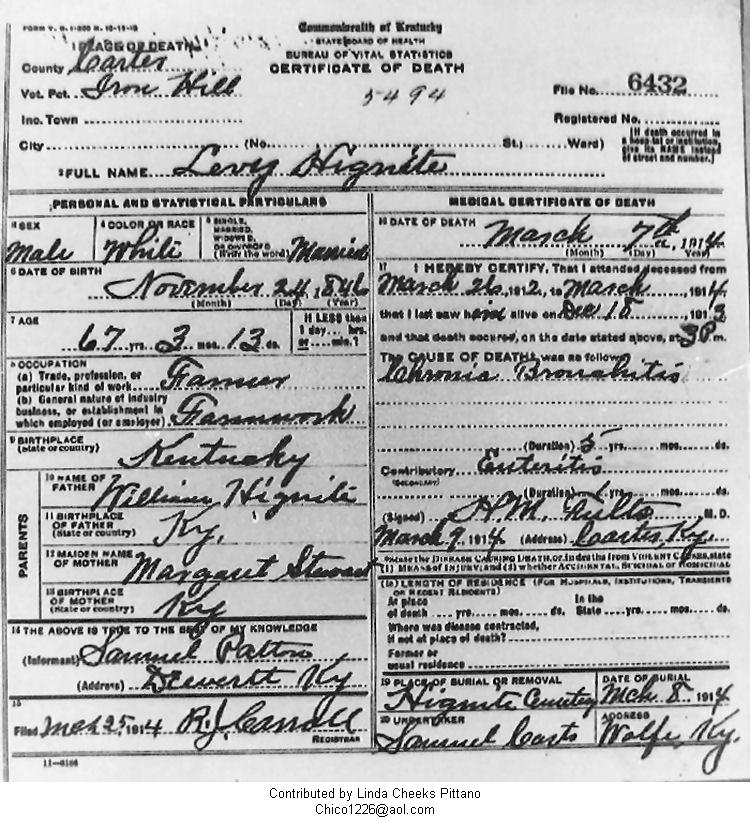 FORM V. S. 1-200 M. 10-11-13
Commonwealth of Kentucky
STATE BOARD OF HEALTH
BUREAU OF VITAL STATISTICS
CERTIFICATE OF DEATH
1 PLACE OF DEATH
County Carter
Vot. Pct. Iron Hill
5494
File No. 6432
Inc. Town
Registered No.
City (No. St.; Ward)
(If death occurred in a hospital or institution, give its NAME instead of street and number.)
2 FULL NAME Levy Hignite
PERSONAL AND STATISTICAL PARTICULARS
3 SEX Male
4 COLOR OR RACE White
5 SINGLE, MARRIED, WIDOWED, OR DIVORCED (Write the word) Married
6 DATE OF BIRTH November 24, 1846
(Month) (Day) (Year)
7 AGE 67 yrs. 3 mos. 13 ds.
If LESS than 1 day ... hrs. or ... min.?
8 OCCUPATION
(a) Trade, profession, or particular kind of work Farmer
(b) General nature of industry business, or establishment in which employed (or employer) Farmwork
9 BIRTHPLACE (State or country) Kentucky
PARENTS
10 NAME OF FATHER William Hignite
11 BIRTHPLACE OF FATHER (State or country) Ky.
12 MAIDEN NAME OF MOTHER Margaret Stewart
13 BIRTHPLACE OF MOTHER (State or country) Ky
14 THE ABOVE IS TRUE TO THE BEST OF MY KNOWLEDGE
(Informant) Samuel Patton
(Address) Ky
15
Filed Mch 25, 1914 R.J. Carroll
REGISTRAR
11-3184
MEDICAL CERTIFICATE OF DEATH
16 DATE OF DEATH March 7th, 1914
(Month) (Day) Year)
17 I HEREBY CERTIFY, That I attended deceased from
March 26, 1912, to March, 1914
that I last saw him alive on Dec 18, 1913
and that death occured, on the date stated above, at 3P m.
The CAUSE OF DEATH was as follows:
Chronic Bronchitis
(Duration) 5 yrs. mos. ds.
Contributory Enteritis
(SECONDARY)
(Duration) 1 yrs. mos. ds.
(Signed) H.M. M.D.
March 9, 1914 (Address) Carter, Ky.
*State the DISEASE CAUSING DEATH, or, in deaths from VIOLENT CAUSES, state
(1) MEANS OF INJURY; and (2) whether ACCIDENTAL, SUICIDAL or HOMICIDAL
18 LENGTH OF RESIDENCE (FOR HOSPITALS, INSTITUTIONS, TRANSIENTS OR RECENT RESIDENTS)
At place of death yrs. mos. ds. In the State yrs. mos. ds.
Where was disease contracted, if not at place of death?
Former or usual residence
19 PLACE OF BURIAL OR REMOVAL Hignite Cemetery
DATE OF BURIAL Mch. 8, 1914
20 UNDERTAKER Samuel
ADDRESS Wolfe, Ky.
Contributed by Linda Cheeks Pittano
Chico1226@aol.com